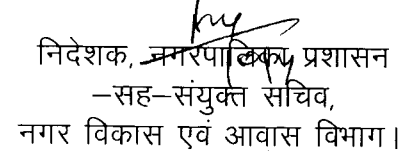 निदेशक, नगरपालिका प्रशासन
–सह–संयुक्त सचिव,
नगर विकास एवं आवास विभाग।